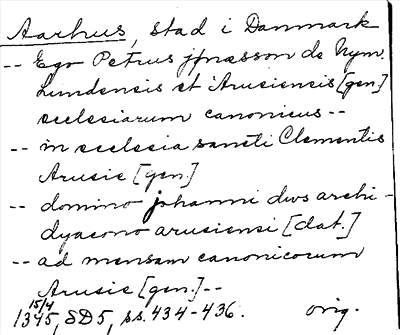 Aarhus, stad i Danmark
-- Ego Petrus jönesson de Nym.
Lundensis et Arusiensis [gen]
ecclesiarum canonicus --
-- in ecclesia sancti Clementis
Arusie [gen.]
-- domino johanni dws archi-
dyacono arusiensi [dat.]
-- ad mensam canonicorum
Arusie [gen.] --
15/4
1345, SD5, ss. 434-436. orig.